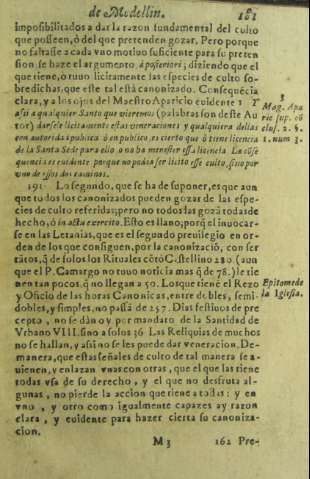 de Medellin. 181
imposibilitados a dar la razon fundamental del culto
que posseen, ò del que pretenden gozar. Pero porque
no faltasse a cada vno motivo suficiente para su preten
sion se haze el argumento à posteriori; diziendo que el
que tiene, ò tuuo licitamente las especies de culto so-
bredichas, que este tal està canonizado. Consequécia
clara, y a los ojos del Maestro Aparicio euidente: Y
assi a qualquier Santo que vieremos (palabras son deste Au
tor) darsele licitamente estas veneraciones y qualquiera dellas
con autoridad publica ò en publico, es cierto que ò tiene licencia
de la Santa Sede para ello, o no ha menester essa licencia. La cõse
quencia es euidente. porque no podia ser licito esse culto, sino por
vno de essos dos caminos.
3
Mag. Apa
ric sup. cõ
clus. 2. §.
1. num 3.
191 Lo segundo, que se ha de suponer, es que aun
que todos los canonizados pueden gozar de las espe
cies de culto referidas; pero no todos las gozã todas de
hecho, ò in actu exercito. Esto es llano; porq̃ el inuocar-
se en las Letanias, que es el segundo preuilegio en or-
den de los que consiguen, por la canonizaciō, con ser
rãtos, q̃ de solos los Rituales cõtò Castellino 280 (aun
que el P. Camargo no tuuo noticia mas q̃ de 78.) le tie
nen tan pocos, q̃ no llegan a 50. Los que tiené el Rezo
y Oficio de las horas Canonicas, entre dobles, semi-
dobles, y simples, no passã de 257. Dias festiuos de pre
cepto, no se dàn oy por mandato de la Santidad de
Vrbano VIII. sino a solos 36 Las Reliquias de muchos
no se hallan, y assi no se les puede dar veneracion. De-
manera, que estas señales de culto de tal manera se a-
uienen, y enlazan vnas con otras, que el que las tiene
todas vsa de su derecho, y el que no desfruta al-
gunas, no pierde la accion que tiene a todas; y en
vno, y otro como igualmente capazes ay razon
clara, y euidente para hazer cierta su canoniza-
cion.
Epitome de
la Iglesia.
M 3 162 Pre-